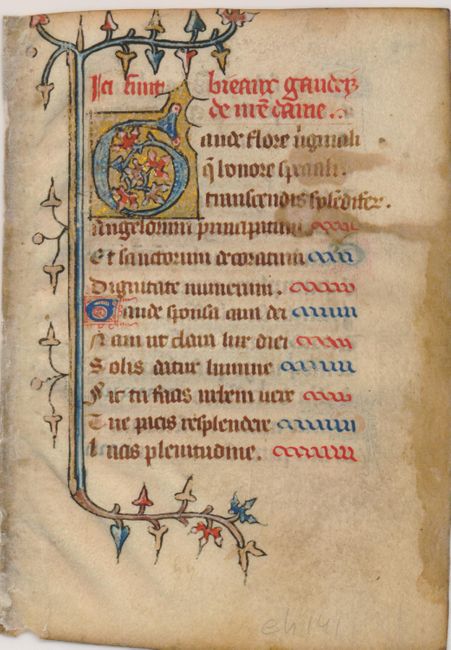 Ici sunt breaux gaudez
de nr̄e dame.
Gaude flore uiginali
q̄ honore sp̄eali.
transcendis splēdifer.
Angelorum principatum
Et sanctorum decoratum
Dignitate munerum.
Gaude sponsa cara dei
Nam ut clara lux diei
Solis datur lumine
Sic tu facis orbem uere
Tue pacis resplendere
Lucis plenitudine.
eh 141